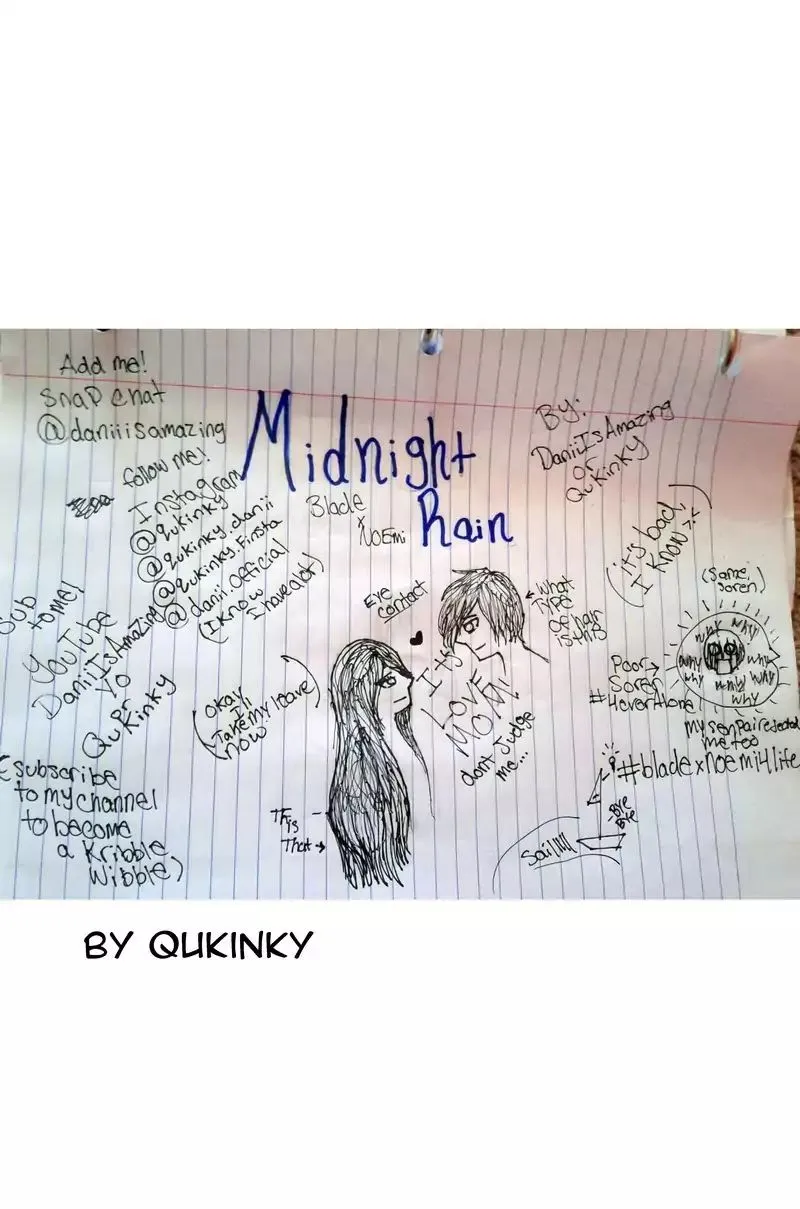 Add me!
Snap chat
@daniiisamazing
follow me!
Instagram
@qukinky
@qukinky_danii
@qukinky.Finsta
@danii.official
(I know
I have alot)
Midnight
Rain
Blade
x
NoEmi
By:
DaniiIsAmazing
or
QuKinky
(it's bad!
I know :-:)
Sub
to me!
YouTube
DaniiIsAmazing
Yo
or
QuKinky
(subscribe
to my channel
to become
a Kribble
Wibble)
(okay
I'll
Take my leave
now)
Eye
contact
It's
LOVE
MOM!
dont judge
me...
←What
Type
of hair
is this
This
That→
(Same,
Soren)
WHY WHY
why why
why why
WHY
why
Poor→
Soren
#4ever Alone
my senpai rejected
me too
#bladexnoemi4life
-Bye
Bye
Sail!!!!
BY QUKINKY